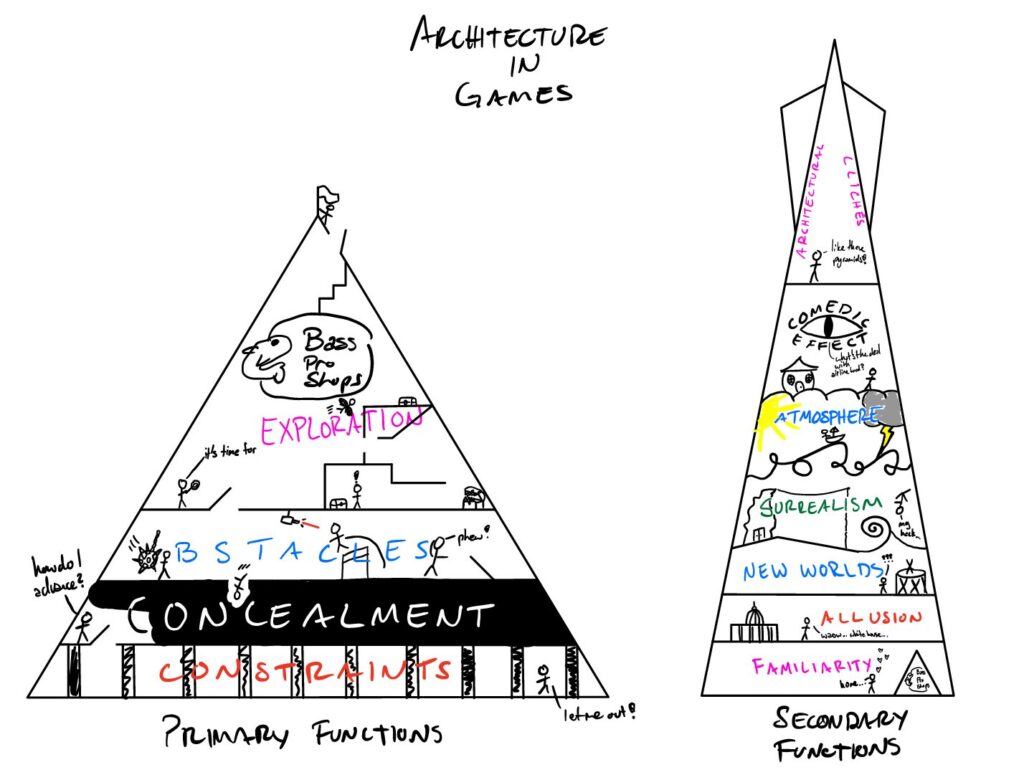 ARCHITECTURE
IN
GAMES
BASS
PRO
SHOPS
EXPLORATION
it's time for
OBSTACLES
phew!
how do I
advance?
CONCEALMENT
CONSTRAINTS
let me out!
PRIMARY FUNCTIONS
ARCHITECTURAL
CLICHÉS
like these
pyramids?
COMEDIC
EFFECT
what's the deal
with
airline food?
ATMOSPHERE
SURREALISM
my
neck...
NEW WORLDS
???
ALLUSION
waow... white house...
FAMILIARITY
home...
Bass
Pro
Shops
SECONDARY
FUNCTIONS